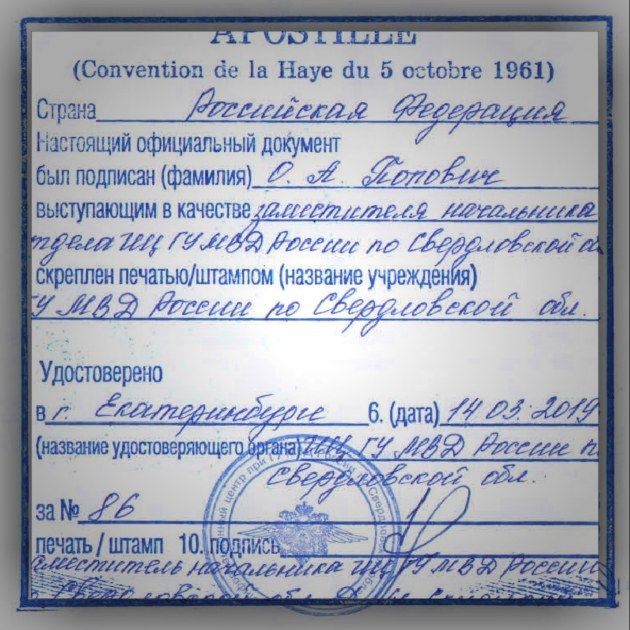 APOSTILLE
(Convention de la Haye du 5 octobre 1961)
Страна Российская Федерация
Настоящий официальный документ
был подписан (фамилия) О. А. Попович
выступающим в качестве заместителя начальника
отдела ИЦ ГУ МВД России по Свердловской
скреплен печатью/штампом (название учреждения)
ГУ МВД России по Свердловской обл.
Удостоверено
в г. Екатеринбурге 6. (дата) 14 03. 2019
(название удостоверяющего органа) ИЦ ГУ МВД России
Свердловской обл.
за № 86
печать / штамп 10. подпись
заместитель начальника ИЦ ГУ МВД России